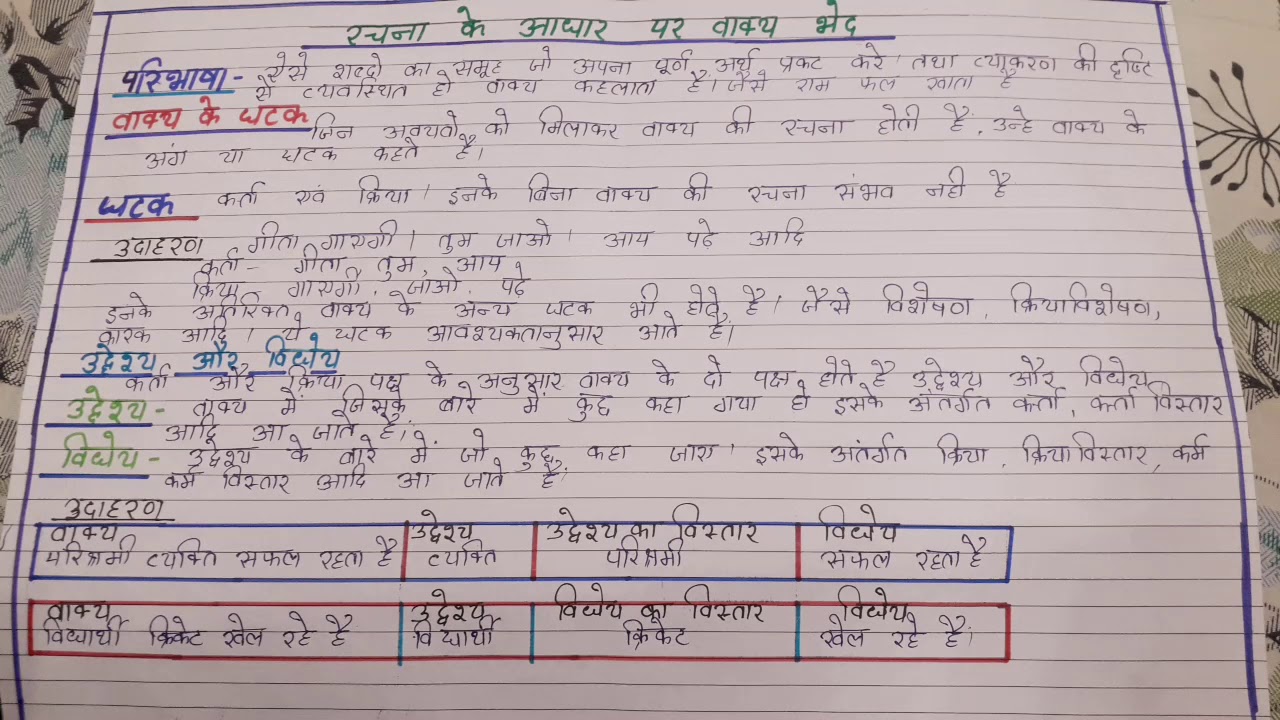 रचना के आधार पर वाक्य भेद
परिभाषा - ऐसे शब्दो का समूह जो अपना पूर्ण अर्थ प्रकट करे। तथा व्याकरण की दृष्टि
से व्यवस्थित हो वाक्य कहलाता है। जैसे राम फल खाता है
वाक्य के घटक जिन अवयवो को मिलाकर वाक्य की रचना होती है, उन्हे वाक्य के
अंग या घटक कहते है।
घटक कर्ता एवं क्रिया। इनके बिना वाक्य की रचना संभव नही है
उदाहरण गीता गाएगी। तुम जाओ। आय पढे आदि
कर्ता - गीता, तुम, आय
क्रिया गाएगी, जाओ, पढे
इनके अतिरिक्त वाक्य के अन्य घटक भी होते है। जैसे विशेषण, क्रियाविशेषण,
कारक आदि। ये घटक आवश्यकतानुसार आते है।
उद्देश्य और विधेय
कर्ता और क्रिया पक्ष के अनुसार वाक्य के दो पक्ष होते है उद्देश्य और विधेय
उद्देश्य - वाक्य में जिसके बारे में कुछ कहा गया हो इसके अंतर्गत कर्ता, कर्ता विस्तार
आदि आ जाते है।
विधेय - उद्देश्य के बारे मे जो कुछ कहा जाए। इसके अंतर्गत क्रिया, क्रियाविस्तार, कर्म
कर्म विस्तार आदि आ जाते है।
उदाहरण
वाक्य उद्देश्य उद्देश्य का विस्तार विधेय
परिश्रमी व्यक्ति सफल रहता है व्यक्ति परिश्रमी सफल रहता है
वाक्य उद्देश्य विधेय का विस्तार विधेय
विद्यार्थी क्रिकेट खेल रहे है विद्यार्थी क्रिकेट खेल रहे है।